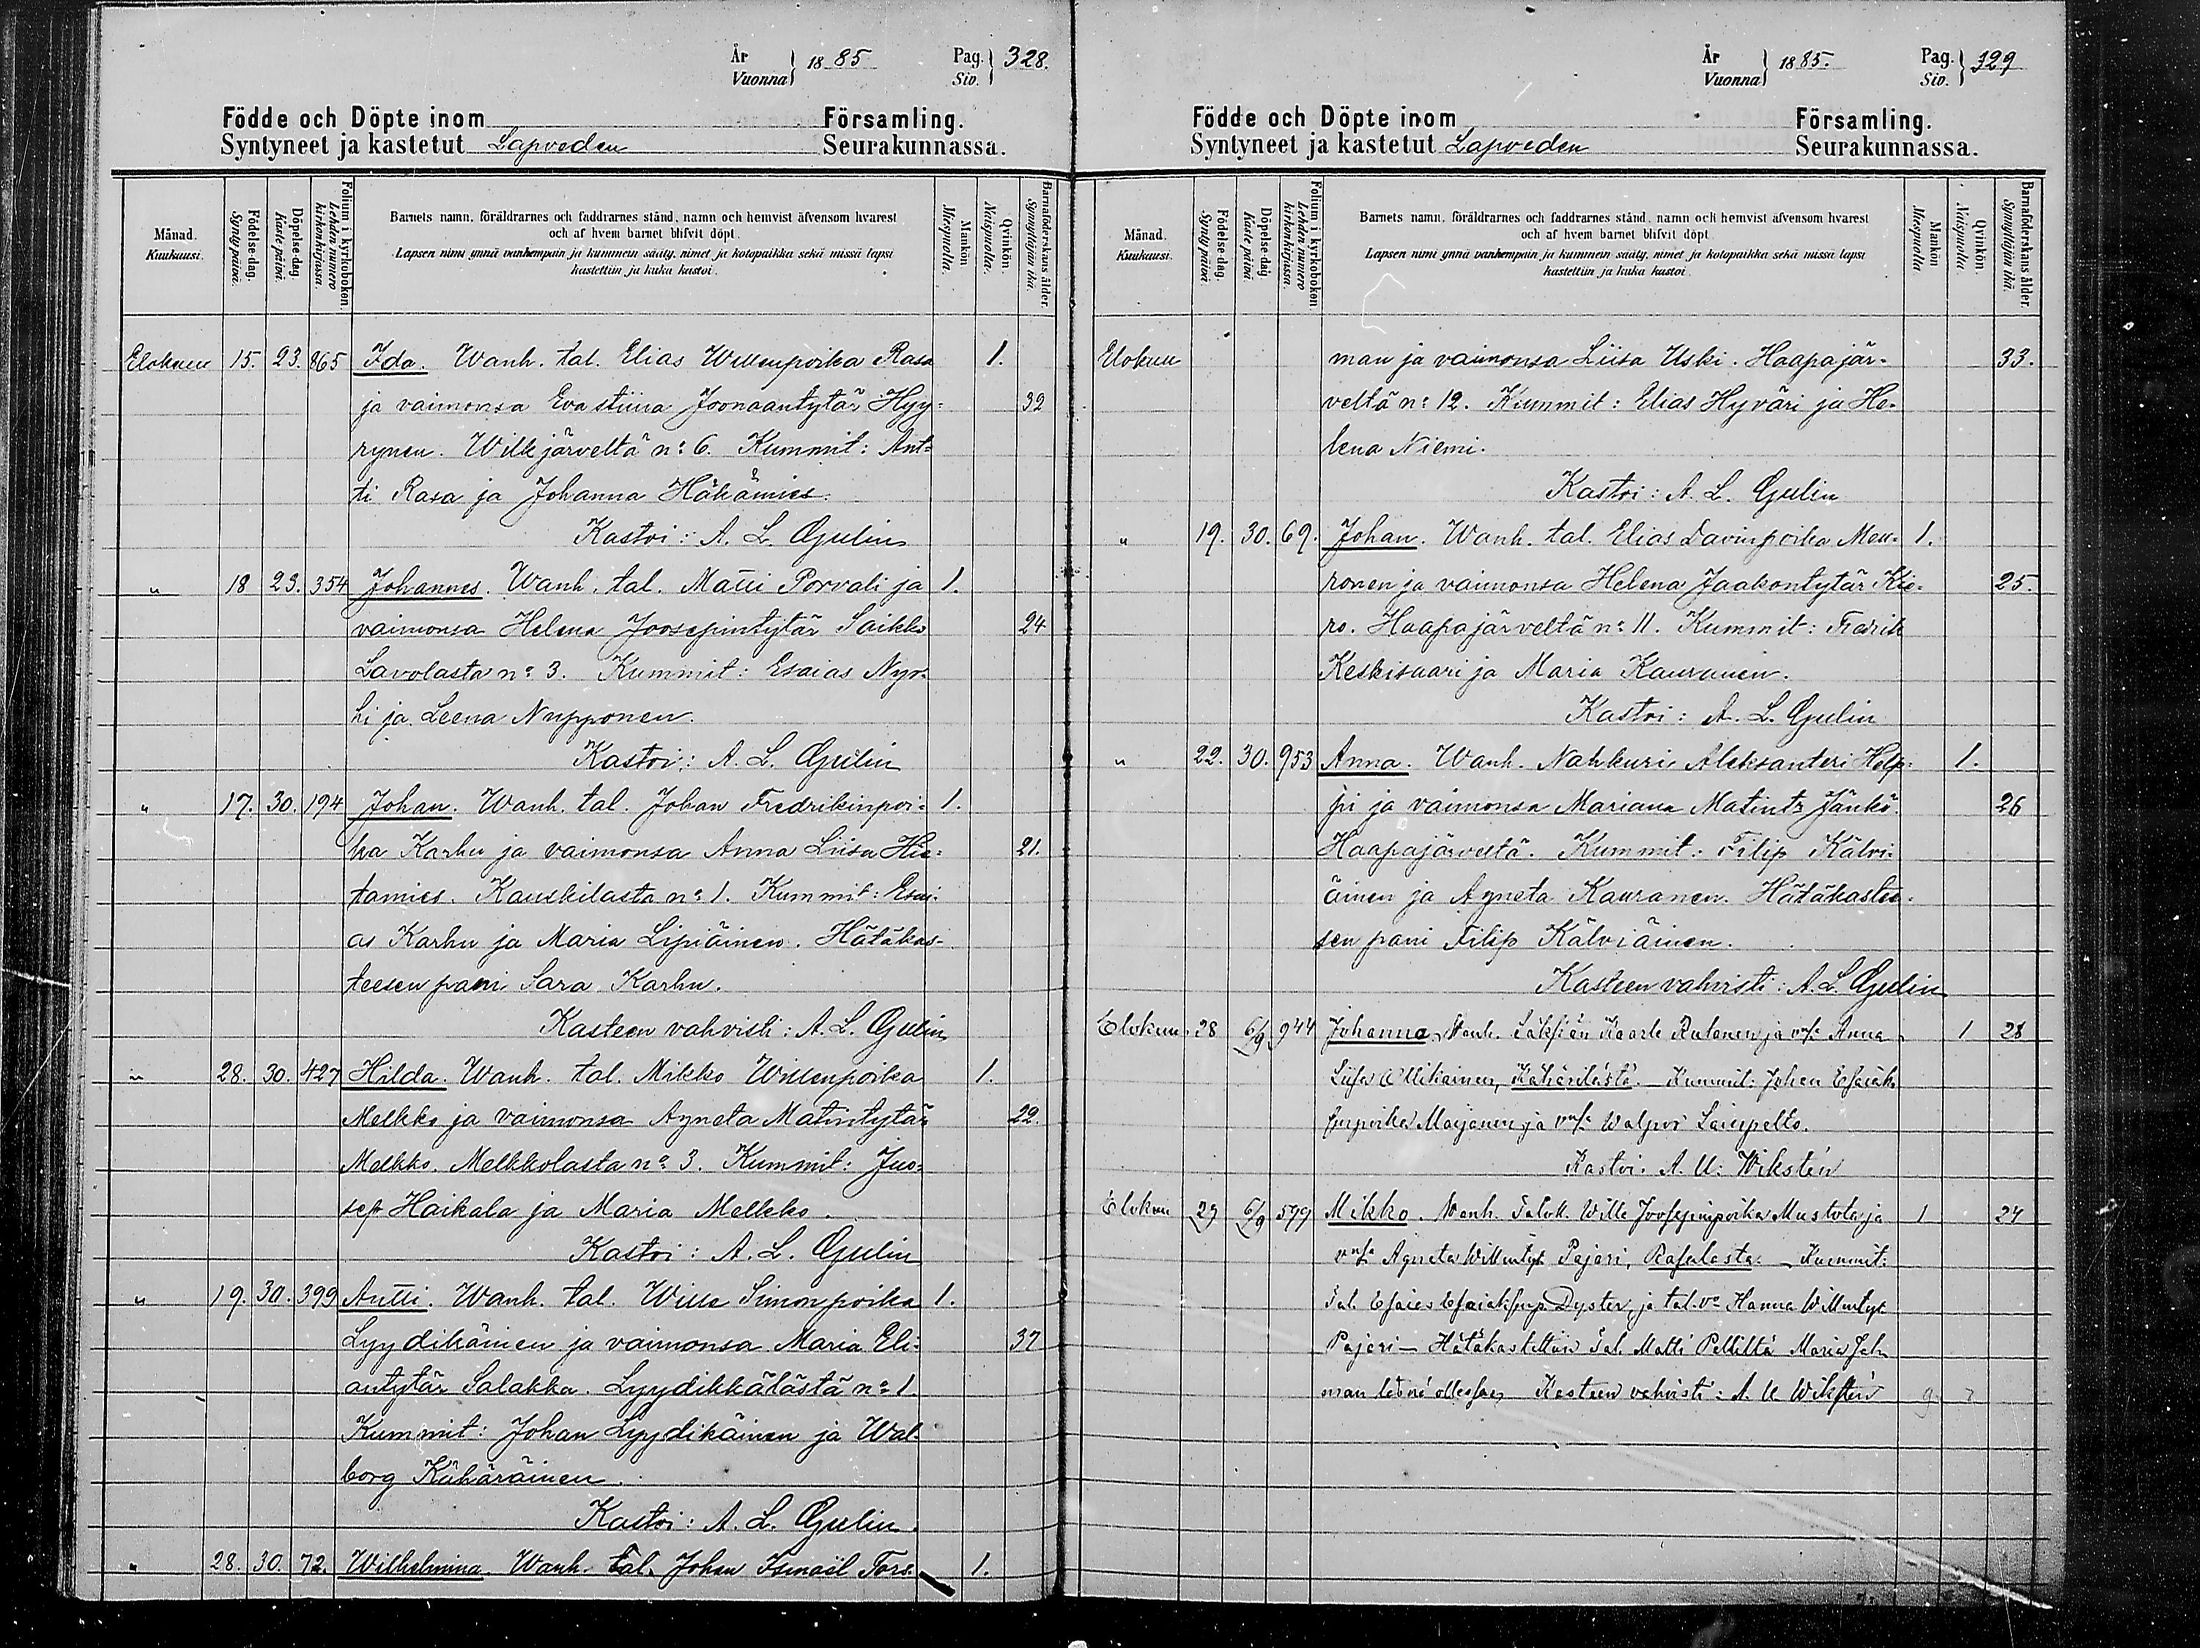 År
Vuonna } 1885 Pag. Siv. } 328.
Födde och Döpte inom Församling.
Syntyneet ja kastetut Lapveden Seurakunnassa.
Månad. Kuukausi.
Födelse-dag. Syntypäivä.
Döpelse-dag. Kastepäivä.
Folium i kyrkoboken. Lehden numero kirkonkirjassa.
Barnets namn, föräldrarnes och faddrarnes stånd, namn och hemvist äfvensom hvarest
och af hvem barnet blifvit döpt.
Lapsen nimi ynnä vanhempain ja kummein sääty, nimet ja kotopaikka sekä missä lapsi
kastettiin ja kuka kastoi.
Mankön Miespuolia.
Qvinkön. Naispuolia.
Barnaföderskans ålder. Synnyttäjän ikä.
Elokuu 15. 23. 865 Ida. Wanh. tal. Elias Willenpoika Rasa 1.
ja vaimonsa Eva Stiina Joonaantytär Hyy- 32
rynen. Wilkjärveltä n:o 6. Kummit: Ant-
ti Rasa ja Johanna Häkämies.
Kastoi: A. L. Gulin
" 18 23. 354 Johannes. Wanh. tal. Matti Porvali ja 1.
vaimonsa Helena Joosepintytär Saikko 24
Lavolasta n:o 3. Kummit: Esaias Nyr-
hi ja Leena Nupponen.
Kastoi: A. L. Gulin
" 17. 30. 194 Johan. Wanh. tal. Johan Fredrikinpoi- 1.
ka Karhu ja vaimonsa Anna Liisa Hie- 21.
tamies. Kauskilasta n:o 1. Kummit: Esai-
as Karhu ja Maria Lipiäinen. Hätäkas-
teesen pani Sara Karhu.
Kasteen vahvisti: A. L. Gulin
" 28. 30. 427 Hilda. Wanh. tal. Mikko Willenpoika 1.
Melkko ja vaimonsa Agneta Matintytär 22.
Melkko. Melkkolasta n:o 3. Kummit: Juo-
sep Haikala ja Maria Melkko.
Kastoi: A. L. Gulin
" 19. 30. 399 Antti. Wanh. tal. Wille Simonpoika 1.
Lyydikäinen ja vaimonsa Maria Eli- 37
antytär Salakka. Lyydikkälästä n:o 1.
Kummit: Johan Lyydikäinen ja Wal-
borg Kähäräinen.
Kastoi: A. L. Gulin.
" 28. 30. 72. Wilhelmina. Wanh. tal. Johan Ismaël Fors- 1.
År
Vuonna } 1885. Pag. Siv. } 329
Födde och Döpte inom Församling.
Syntyneet ja kastetut Lapveden Seurakunnassa.
Månad. Kuukausi.
Födelse-dag. Syntypäivä.
Döpelse-dag. Kastepäivä.
Folium i kyrkoboken. Lehden numero kirkonkirjassa.
Barnets namn, föräldrarnes och faddrarnes stånd, namn och hemvist äfvensom hvarest
och af hvem barnet blifvit döpt.
Lapsen nimi ynnä vanhempain ja kummein sääty, nimet ja kotopaikka sekä missä lapsi
kastettiin ja kuka kastoi.
Mankön Miespuolia
Qvinkön. Naispuolia
Barnaföderskans ålder. Synnyttäjän ikä.
Elokuu man ja vaimonsa Liisa Uski. Haapajär- 33.
veltä n:o 12. Kummit: Elias Hyväri ja He-
lena Niemi.
Kastoi: A. L. Gulin
" 19. 30. 69. Johan. Wanh. tal. Elias Davinpoika Meu- 1.
ronen ja vaimonsa Helena Jaakontytär Kie- 25.
ro. Haapajärveltä n:o 11. Kummit: Fredrik
Keskisaari ja Maria Kauranen.
Kastoi: A. L. Gulin
" 22. 30. 953 Anna. Wanh. Nahkuri Aleksanteri Help- 1.
pi ja vaimonsa Mariana Matintr Jänkö. 26
Haapajärveltä. Kummit: Filip Kälvi-
äinen ja Agneta Kauranen. Hätäkastee-
sen pani Filip Kälviäinen.
Kasteen vahvisti: A. L. Gulin
Elokuu 28 6/9 944 Johanna. Wanh. Kaarle Rulanen ja v:sa Anna 1 28
Liisa Ollikainen, Kähärilästä. Kummit: Johan Esaiak-
senpoika Marjanen ja v:sa Walpori
Kastoi: A. U. Wikstén
Elokuu 29 6/9 599 Mikko. Wanh. Talok. Wille Joosepinpoika Mustola ja 1 27
v:sa Agneta Willentyt. Pajari, Rasalasta. Kummit:
Tal. Esaias Esaiaksenp. Dyster, ja tal. v:o Hanna Willentyt.
Pajari — Hätäkastettiin Tal. Matti Maria
man ollessa, Kasteen vahvisti: A. U. Wikstén